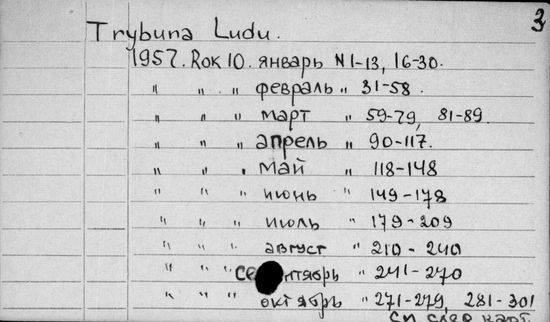 3
Trybuna Ludu.
1957. Rok 10. январь N 1-13, 16-30.
" " " февраль " 31-58.
" " " март " 59-79, 81-89.
" " " апрель " 90-117.
" " " май " 118-148
" " " июнь " 149-178
" " " июль " 179-209
" " " август " 210-240
" " " сентябрь " 241-270
" " " октябрь " 271-279, 281-301
см след карт.